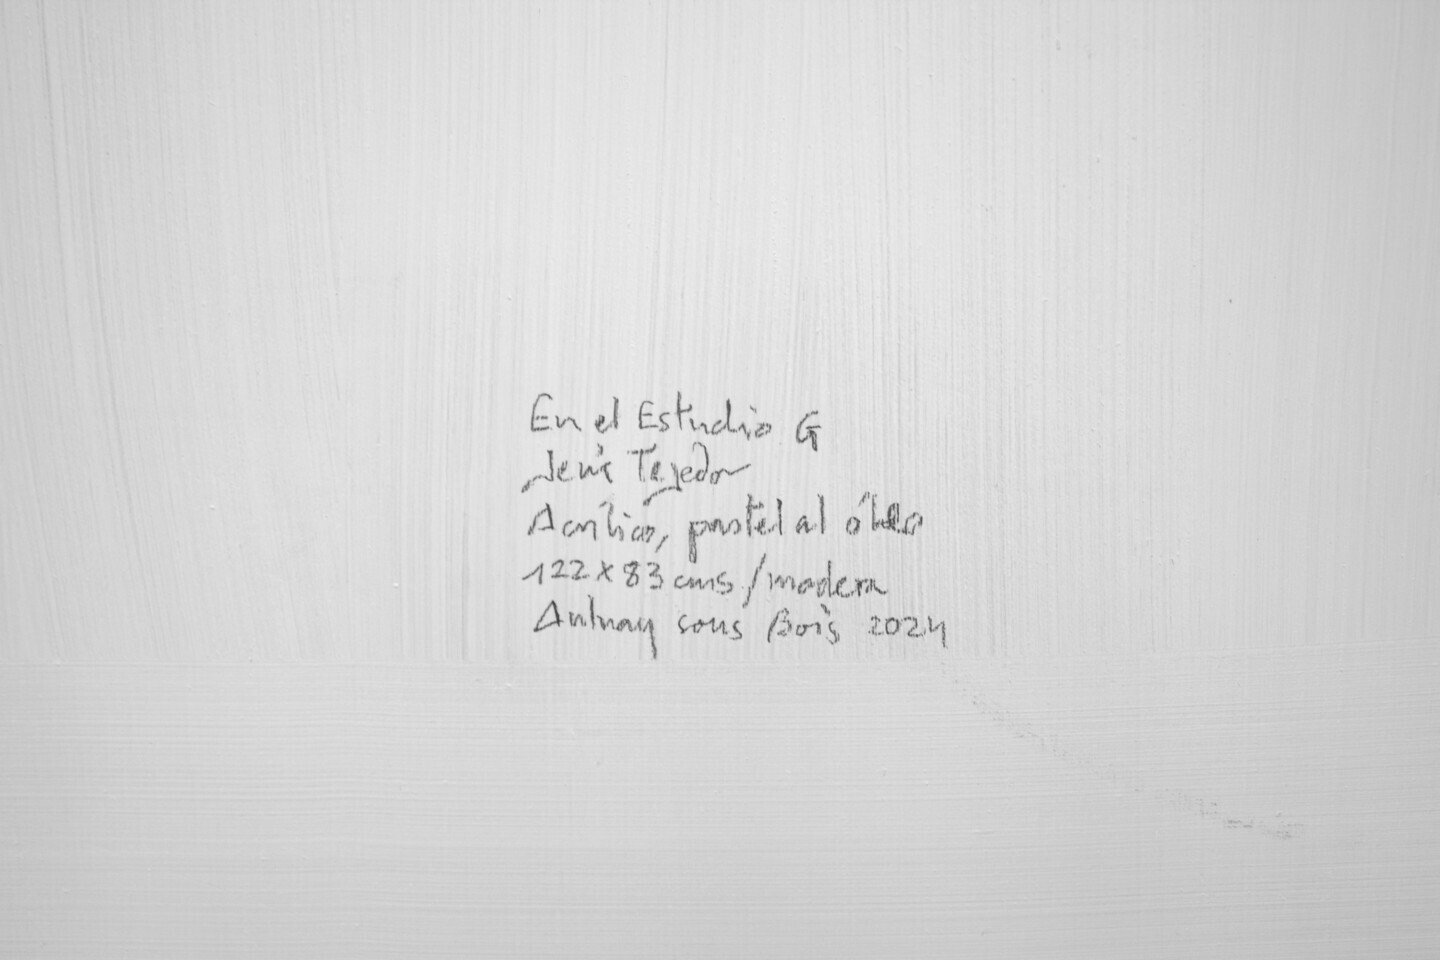 En el Estudio G
Jesús Tejedor
Acrílico, pastel al óleo
122 x 83 cms / madera
Aulnay sous Bois 2024